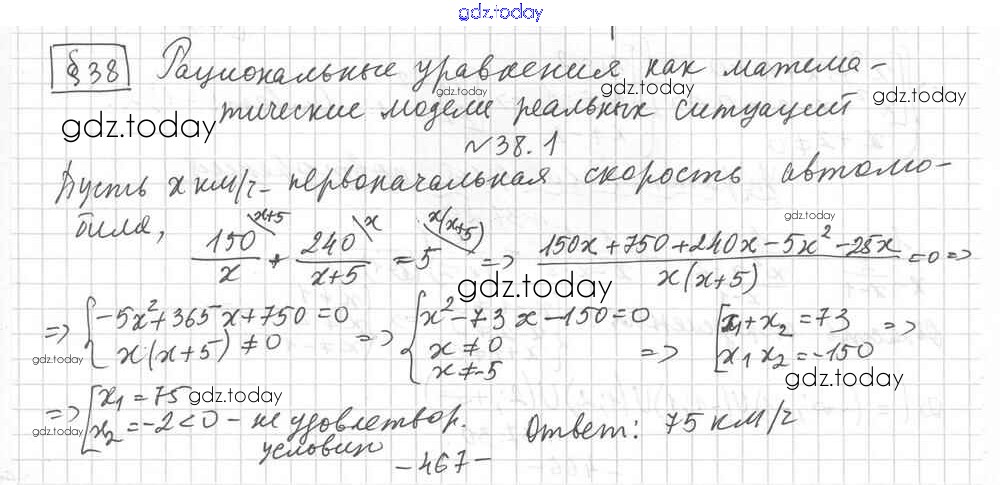 gdz.today
§38 Рациональные уравнения как матема-
тические модели реальных ситуаций
gdz.today gdz.today gdz.today gdz.today
№38.1
Пусть x км/ч - первоначальная скорость автомо-
биля,
150/x \x+5 + 240/(x+5) \x = 5 \x(x+5) => (150x+750+240x-5x²-25x)/(x(x+5)) =0 =>
gdz.today gdz.today
=> { -5x²+365x+750=0 ; x(x+5)≠0 => { x²-73x-150=0 ; x≠0 ; x≠-5 => [ x₁+x₂=73 ; x₁x₂=-150 =>
gdz.today gdz.today
=> [ x₁=75 ; x₂=-2<0 - не удовлетвор. условию
gdz.today gdz.today
Ответ: 75 км/ч
-467-